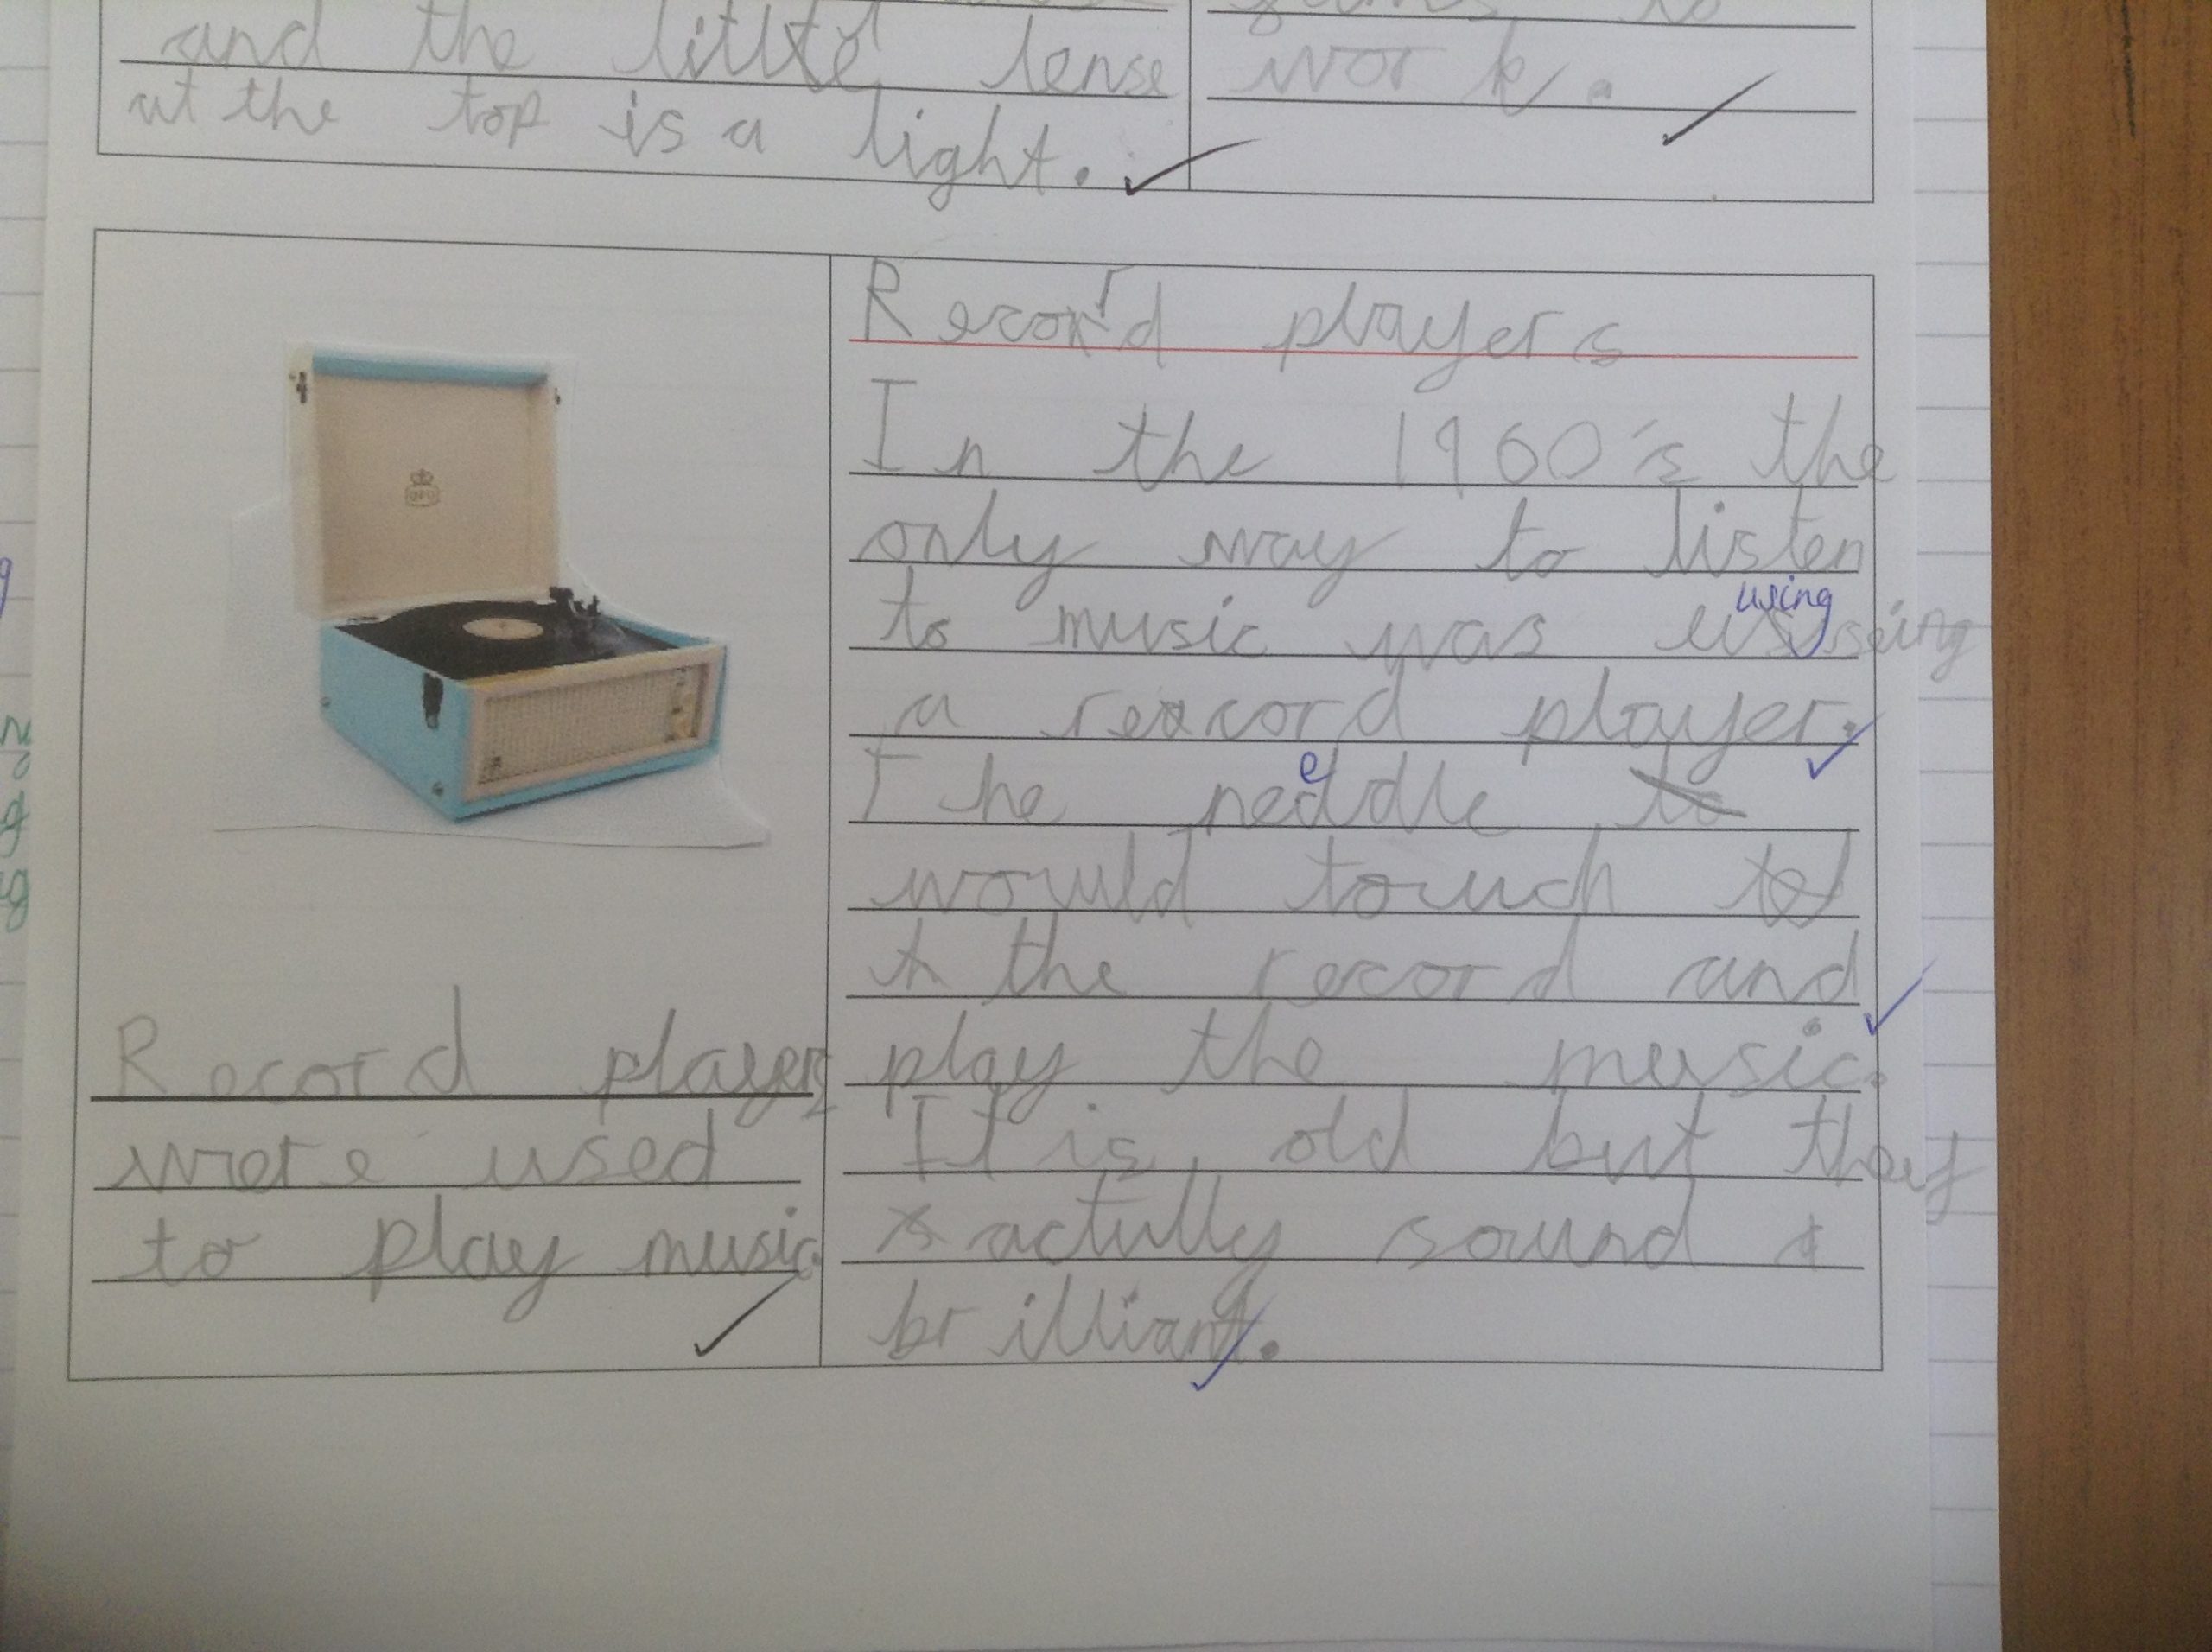 and the little lense
at the top is a light.
work.
Record players
In the 1960's the
only way to listen
to music was using
a record player.
The needdle
would touch
the record and
play the music.
It is old but they
actully sound
brilliant.
GPO
Record players
were used
to play music.